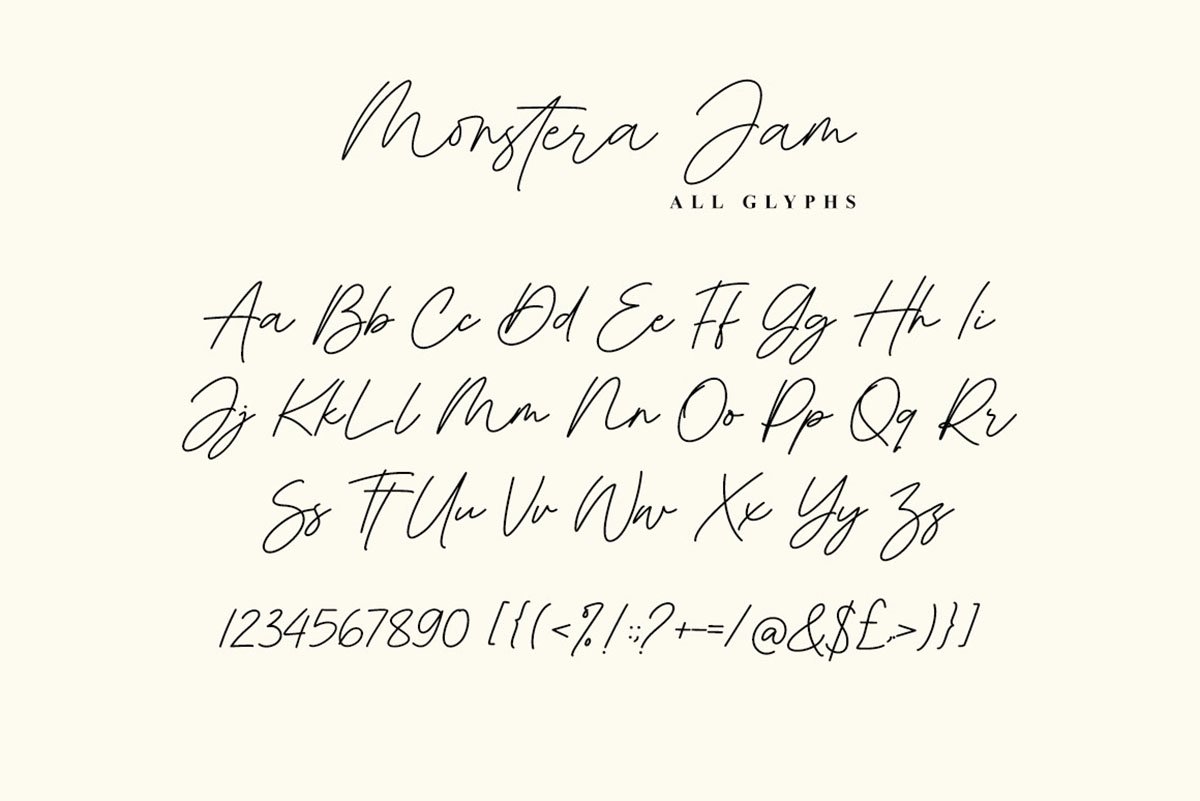 Monstera Jam
ALL GLYPHS
Aa Bb Cc Dd Ee Ff Gg Hh Ii
Jj Kk Ll Mm Nn Oo Pp Qq Rr
Ss Tt Uu Vv Ww Xx Yy Zz
1234567890 [{(<%!:;?+-=/@&$£,.>)}]